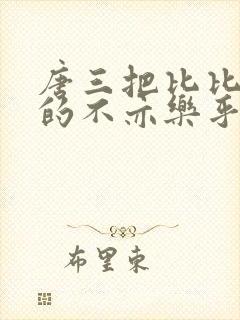 唐三把比比
的不亦樂乎
布里東